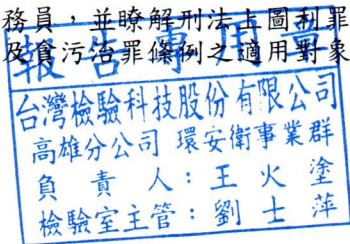 務員，並瞭解刑法上圖利罪
及貪污治罪條例之適用對象
報告專用章
台灣檢驗科技股份有限公司
高雄分公司 環安衛事業群
負責人：王火塗
檢驗室主管：劉士萍